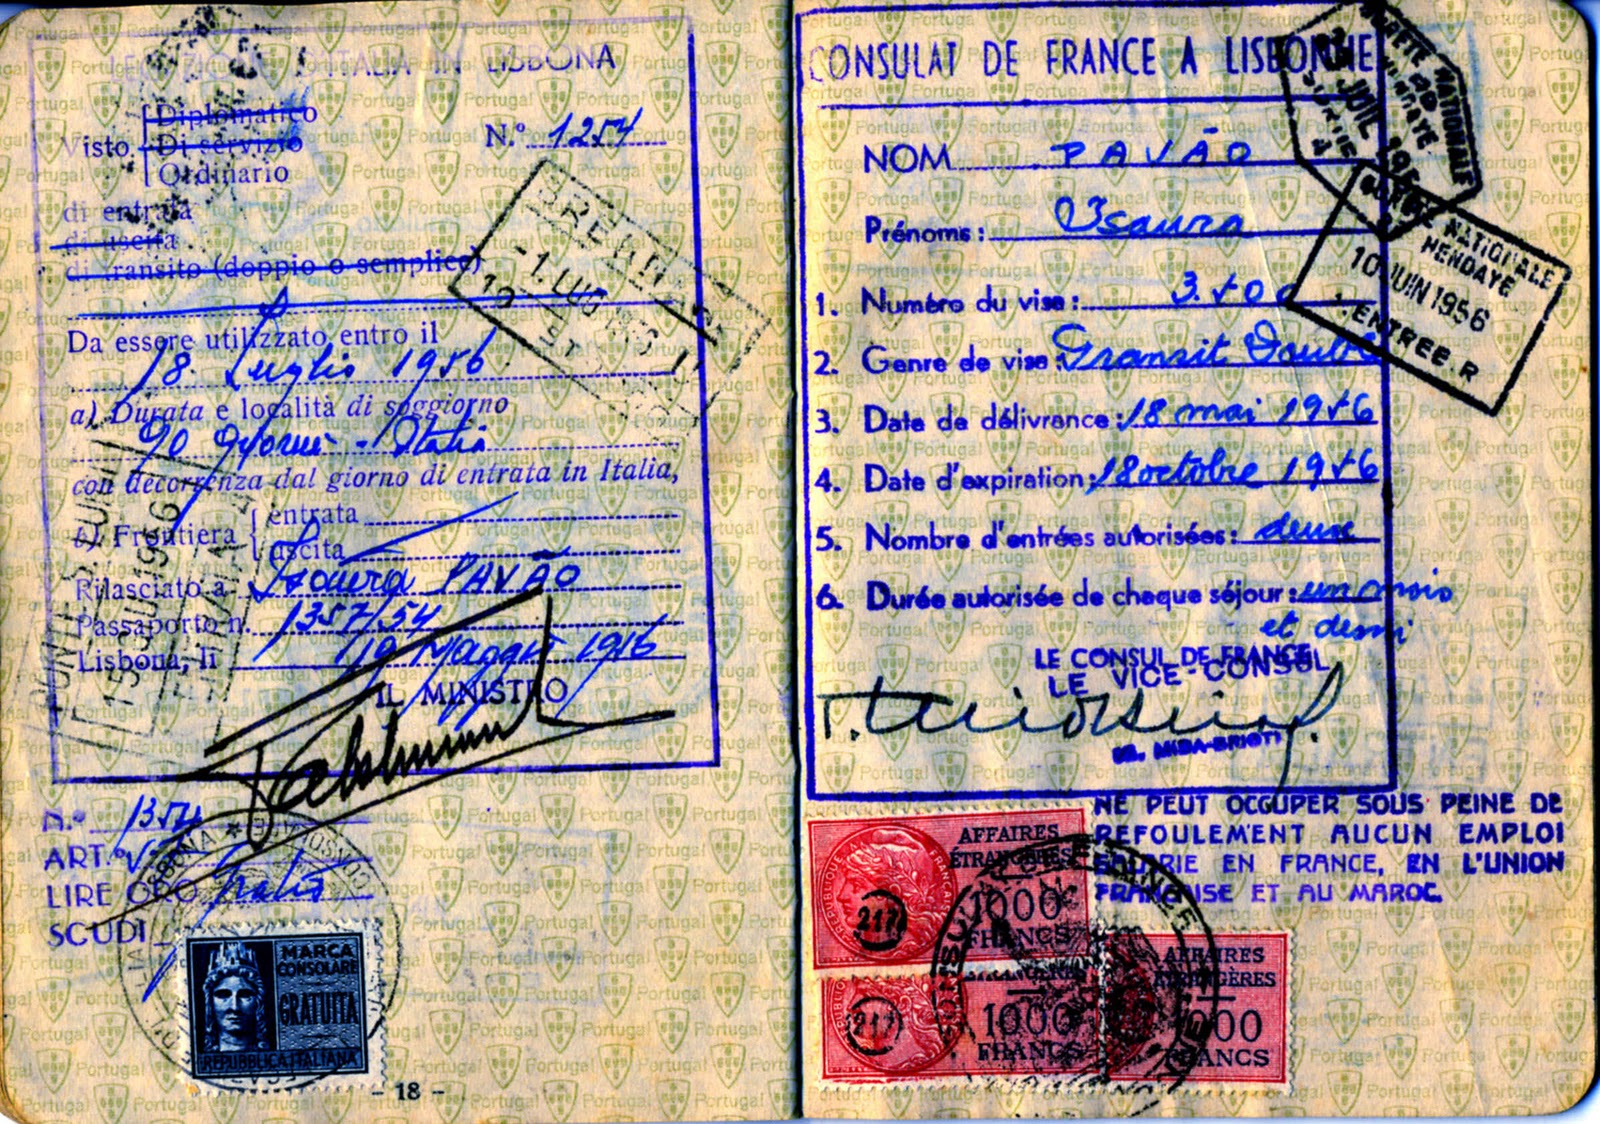 D'ITALIA IN LISBONA
Diplomatico
Visto Di servizio N.º 1254
Ordinario
di entrata
di uscita
di transito (doppio o semplice)
Da essere utilizzato entro il
18 Luglio 1956
a) Durata e località di soggiorno
90 giorni - Italia
con decorrenza dal giorno di entrata in Italia,
b) Frontiera entrata
uscita
Rilasciato a Isaura PAVÃO
Passaporto n. 1357/54
Lisbona, li 19 Maggio 1956
IL MINISTRO
N.º 1354
ART.º
LIRE ORO Gratis
SCUDI
MARCA
CONSOLARE
GRATUITA
REPUBBLICA ITALIANA
- 18 -
-1. LUG 1956
PONTE S. LUIGI
CONSULAT DE FRANCE A LISBONNE
NOM PAVÃO
Prénoms: Isaura
1. Numéro du visa: 3.500
2. Genre de visa: Transit Double
3. Date de délivrance: 18 mai 1956
4. Date d'expiration: 18 octobre 1956
5. Nombre d'entrées autorisées: deux
6. Durée autorisée de chaque séjour: un mois
et demi
LE CONSUL DE FRANCE
LE VICE-CONSUL
NE PEUT OCCUPER SOUS PEINE DE
REFOULEMENT AUCUN EMPLOI
SALARIE EN FRANCE, EN L'UNION
FRANÇAISE ET AU MAROC.
SURETE NATIONALE
HENDAYE
JUIL 195
SURETE NATIONALE
HENDAYE
10 JUIN 1956
ENTREE. R
AFFAIRES
ÉTRANGÈRES
1000
FRANCS
RÉPUBLIQUE FRANÇAISE
217
1000
FRANCS
217
AFFAIRES
ÉTRANGÈRES
1000
FRANCS
Portugal